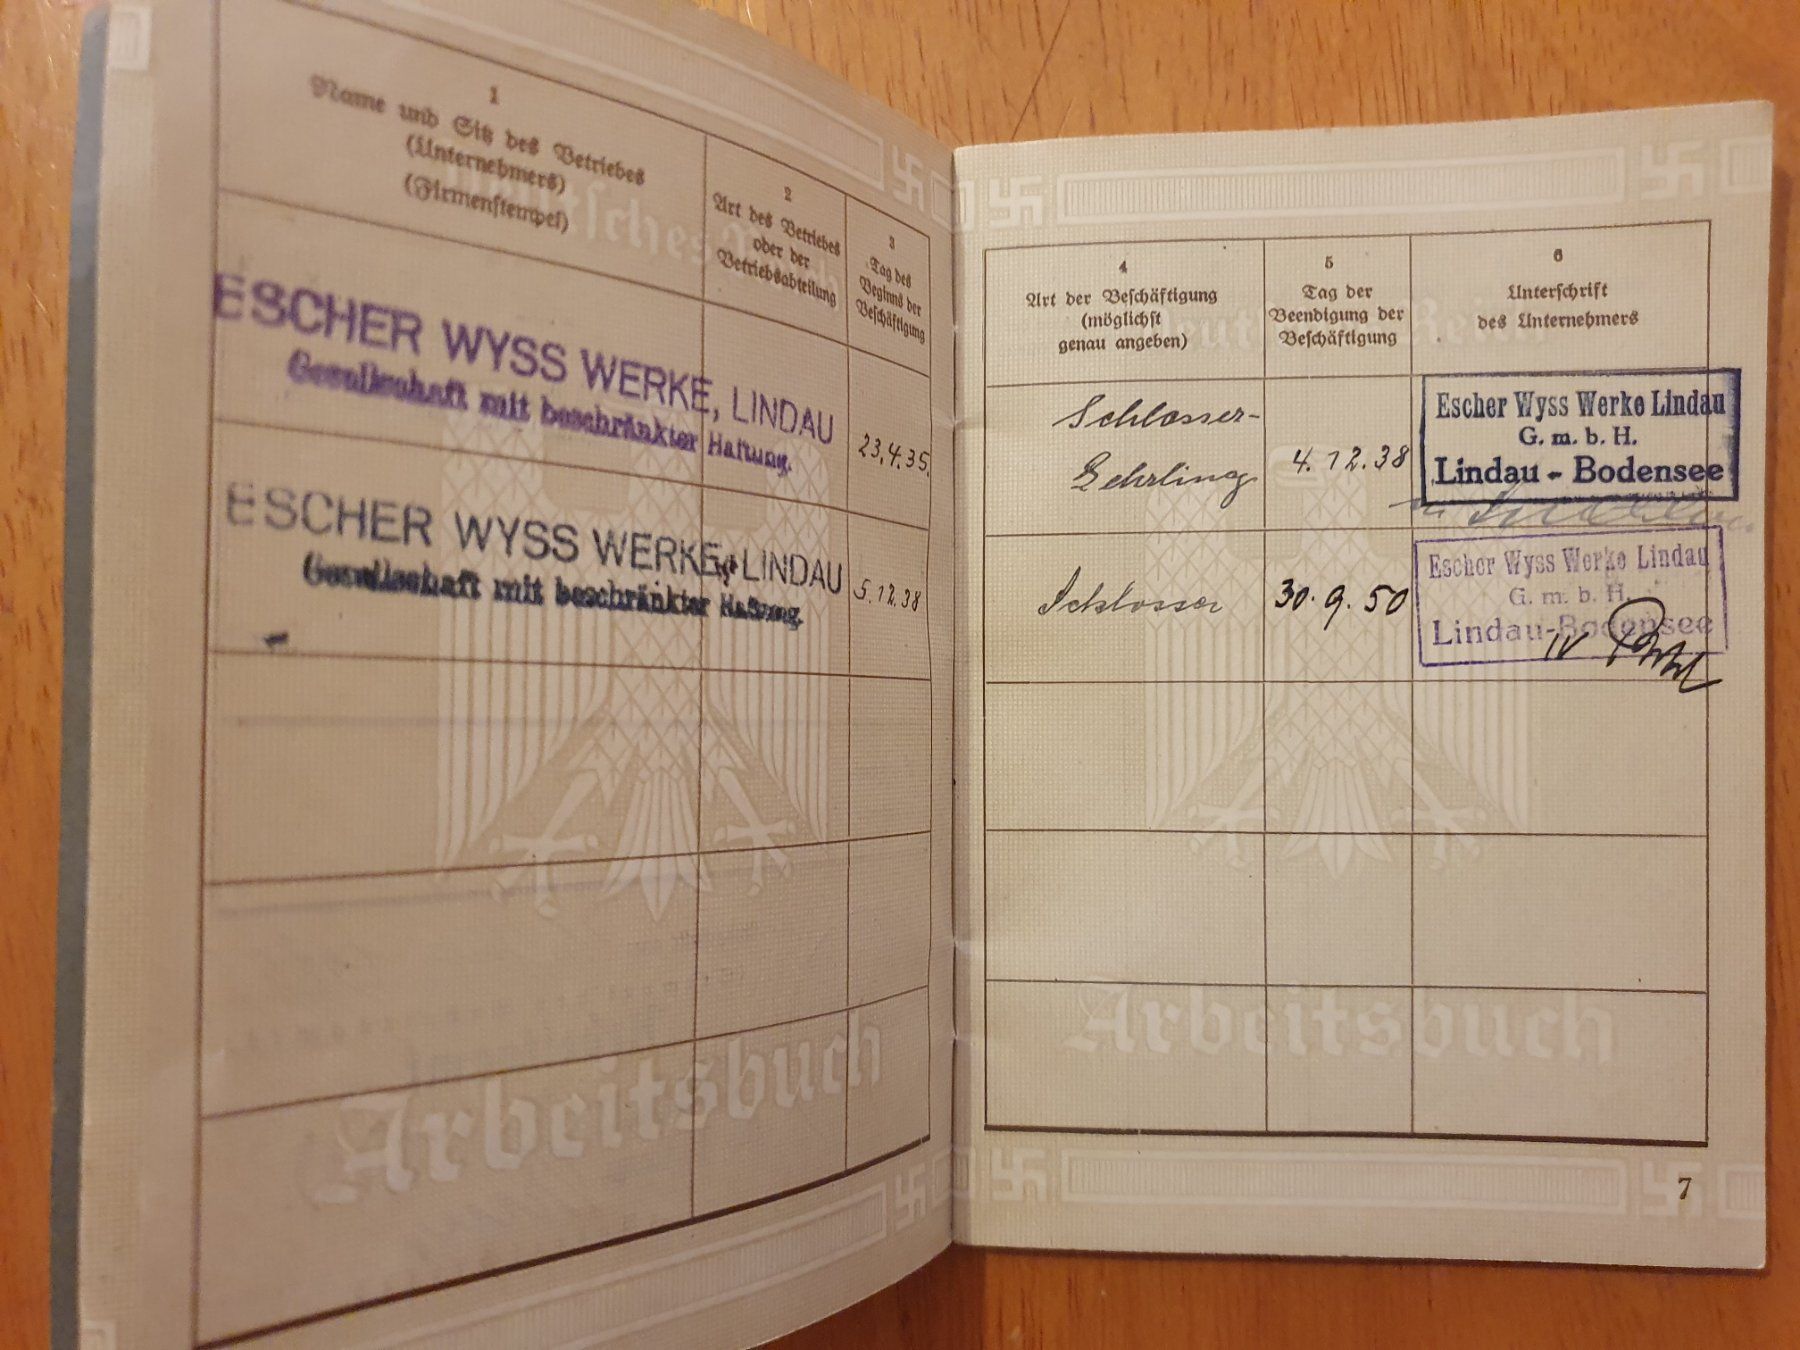 1
Name und Sitz des Betriebes
(Unternehmers)
(Firmenstempel)
2
Art des Betriebes
oder der
Betriebsabteilung
3
Tag des
Beginns der
Beschäftigung
ESCHER WYSS WERKE, LINDAU
Gesellschaft mit beschränkter Haftung.
23.4.35.
ESCHER WYSS WERKE, LINDAU
Gesellschaft mit beschränkter Haftung.
5.12.38
Arbeitsbuch
4
Art der Beschäftigung
(möglichst
genau angeben)
5
Tag der
Beendigung der
Beschäftigung
6
Unterschrift
des Unternehmers
Schlosser-
Lehrling
4.12.38
Escher Wyss Werke Lindau
G. m. b. H.
Lindau - Bodensee
Schlosser
30.9.50
Escher Wyss Werke Lindau
G. m. b. H.
Lindau-Bodensee
Arbeitsbuch
7